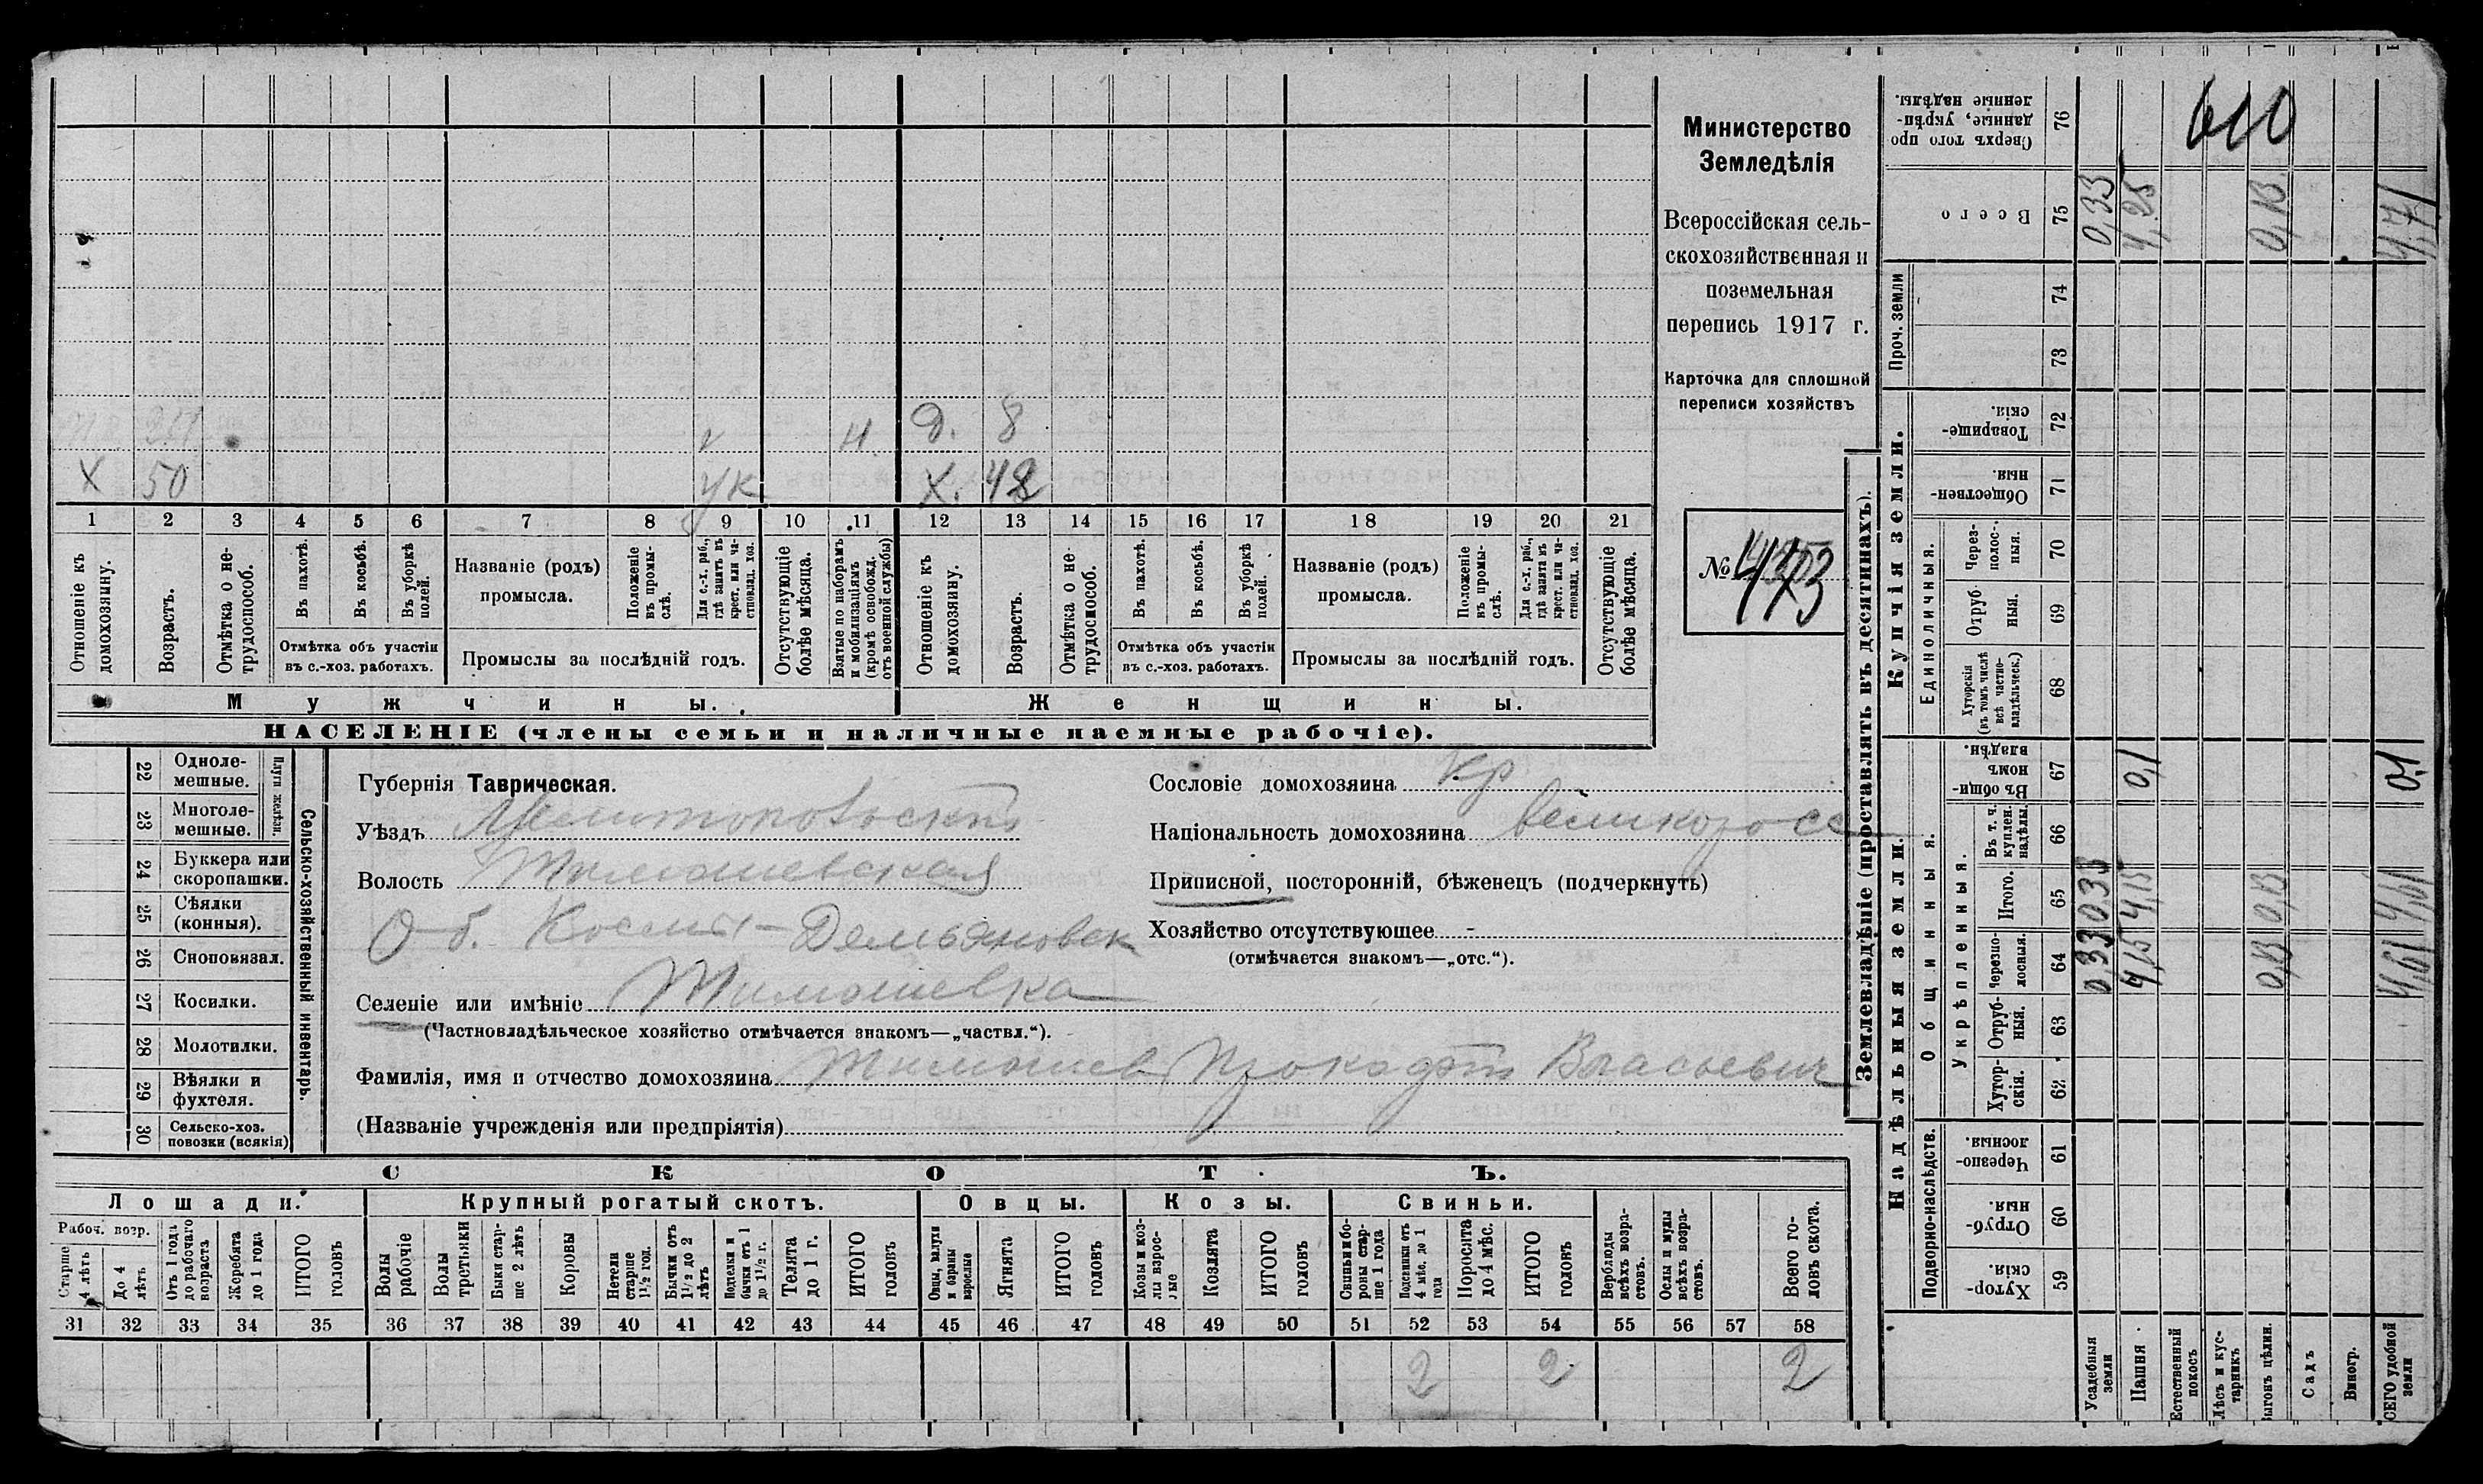 Х 50 ук Х. 42
н Д. 8
1 2 3 4 5 6 7 8 9 10 11 12 13 14 15 16 17 18 19 20 21
Отношеніе къ домохозяину.
Возрастъ.
Отмѣтка о нетрудоспособ.
Въ пахотѣ.
Въ косьбѣ.
Въ уборкѣ полей.
Отмѣтка объ участіи
въ с.-хоз. работахъ.
Названіе (родъ)
промысла.
Положеніе въ промыслѣ.
Для с.-х. раб., гдѣ занятъ въ крест. или частновлад. хоз.
Промыслы за послѣдній годъ.
Отсутствующіе болѣе мѣсяца.
Взятые по наборамъ и мобилизаціямъ (кромѣ освобожд. отъ военной службы)
Отношеніе къ домохозяину.
Возрастъ.
Отмѣтка о нетрудоспособ.
Въ пахотѣ.
Въ косьбѣ.
Въ уборкѣ полей.
Отмѣтка объ участіи
въ с.-хоз. работахъ.
Названіе (родъ)
промысла.
Положеніе въ промыслѣ.
Для с.-х. раб., гдѣ занята въ крест. или частновлад. хоз.
Промыслы за послѣдній годъ.
Отсутствующіе болѣе мѣсяца.
Мужчины.
Женщины.
НАСЕЛЕНІЕ (члены семьи и наличные наемные рабочіе).
Министерство
Земледѣлія
Всероссійская сель-
скохозяйственная и
поземельная
перепись 1917 г.
Карточка для сплошной
переписи хозяйствъ
№ 473
Сельско-хозяйственный инвентарь.
Плуги желѣзн.
22 Однолемешные.
23 Многолемешные.
24 Буккера или скоропашки.
25 Сѣялки (конныя).
26 Сноповязал.
27 Косилки.
28 Молотилки.
29 Вѣялки и фухтеля.
30 Сельско-хоз. повозки (всякія)
Губернія Таврическая.
Уѣздъ Мелитопольскій
Волость Тимошевская
Об. Косми-Демьяновск
Селеніе или имѣніе Тимошевка
(Частновладѣльческое хозяйство отмѣчается знакомъ—„частвл.“).
Фамилія, имя и отчество домохозяина Тимошев Прокофій Власьевич
(Названіе учрежденія или предпріятія)
Сословіе домохозяина кр
Національность домохозяина великоросс
Приписной, посторонній, бѣженецъ (подчеркнуть)
Хозяйство отсутствующее -
(отмѣчается знакомъ—„отс.“).
СКОТЪ.
Лошади. Крупный рогатый скотъ. Овцы. Козы. Свиньи.
Рабоч. возр.
Старше 4 лѣтъ
До 4 лѣтъ
Отъ 1 года до рабочаго возраста
Жеребята до 1 года
ИТОГО головъ
Волы рабочіе
Волы третьяки
Быки старше 2 лѣтъ
Коровы
Нетели старше 1½ год.
Бычки отъ 1½ до 2 лѣтъ
Подтелки и бычки отъ 1 до 1½ г.
Телята до 1 г.
ИТОГО головъ
Овцы, валухи и бараны взрослые
Ягнята
ИТОГО головъ
Козы и козлы взрослые
Козлята
ИТОГО головъ
Свиньи и бороны старше 1 года
Подсвинки отъ 4 мѣс. до 1 года
Поросята до 4 мѣс.
ИТОГО головъ
Верблюды всѣхъ возрастовъ.
Ослы и мулы всѣхъ возрастовъ.
Всего головъ скота.
31 32 33 34 35 36 37 38 39 40 41 42 43 44 45 46 47 48 49 50 51 52 53 54 55 56 57 58
2 2 2
Землевладѣніе (проставлять въ десятинахъ).
610
Сверхъ того проданные, укрѣпленные надѣлы. 76
Всего 75 0,33 4,25 0,13 4,71
Проч. земли 74 73
Купчія земли.
Товарищескія. 72
Общественныя. 71
Единоличныя.
Черезполосныя. 70
Отрубныя. 69
Хуторскія (въ томъ числѣ всѣ частновладѣльческ.) 68
Надѣльныя земли.
Общинныя.
Въ общинномъ владѣн. 67 0,1 0,1
Укрѣпленныя.
Въ т. ч. куплен. надѣлы. 66
Итого. 65 0,33 4,15 0,13 4,61
Черезполосныя. 64 0,33 4,15 0,13 4,61
Отрубныя. 63
Хуторскія. 62
Подворно-наслѣдств.
Черезполосныя. 61
Отрубныя. 60
Хуторскія. 59
Усадебныя земли
Пашня
Естественный покосъ
Лѣсъ и кустарникъ
Выгонъ цѣлин.
Садъ
Виногр.
ВСЕГО удобной земли